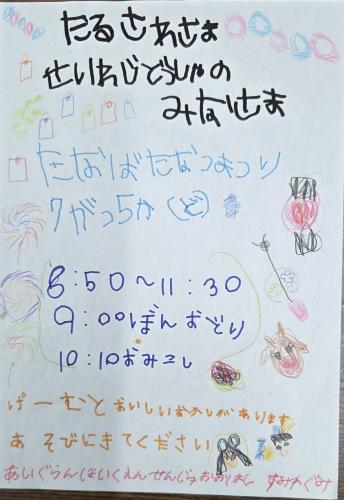 たるさわさま
せいわじどうしゃの
みなさま
たなばたなつまつり
7がつ5か(ど)
8:50〜11:30
9:00ぼんおどり
10:10おみこし
げーむと おいしいおかしがあります
あそびにきてください
あいぐらんほいくえん すみれぐみ